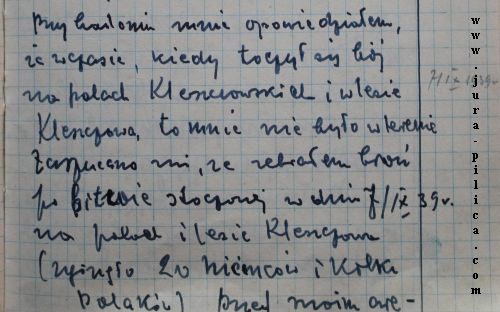 Przy badaniu mnie opowiedziałem,
że w czasie, kiedy toczył się bój
na polach Kleszczowskich i w lesie
Kleszczowa, to mnie nie było w terenie
Zarzucano mi, że zebrałem broń
po bitwie stoczonej w dniu 7/IX 39r.
na polach i lesie Kleszczowa
(zginęło 20 Niemców i kilku
Polaków) przed moim are-
7/IX 1939r
www.jura-pilica.com